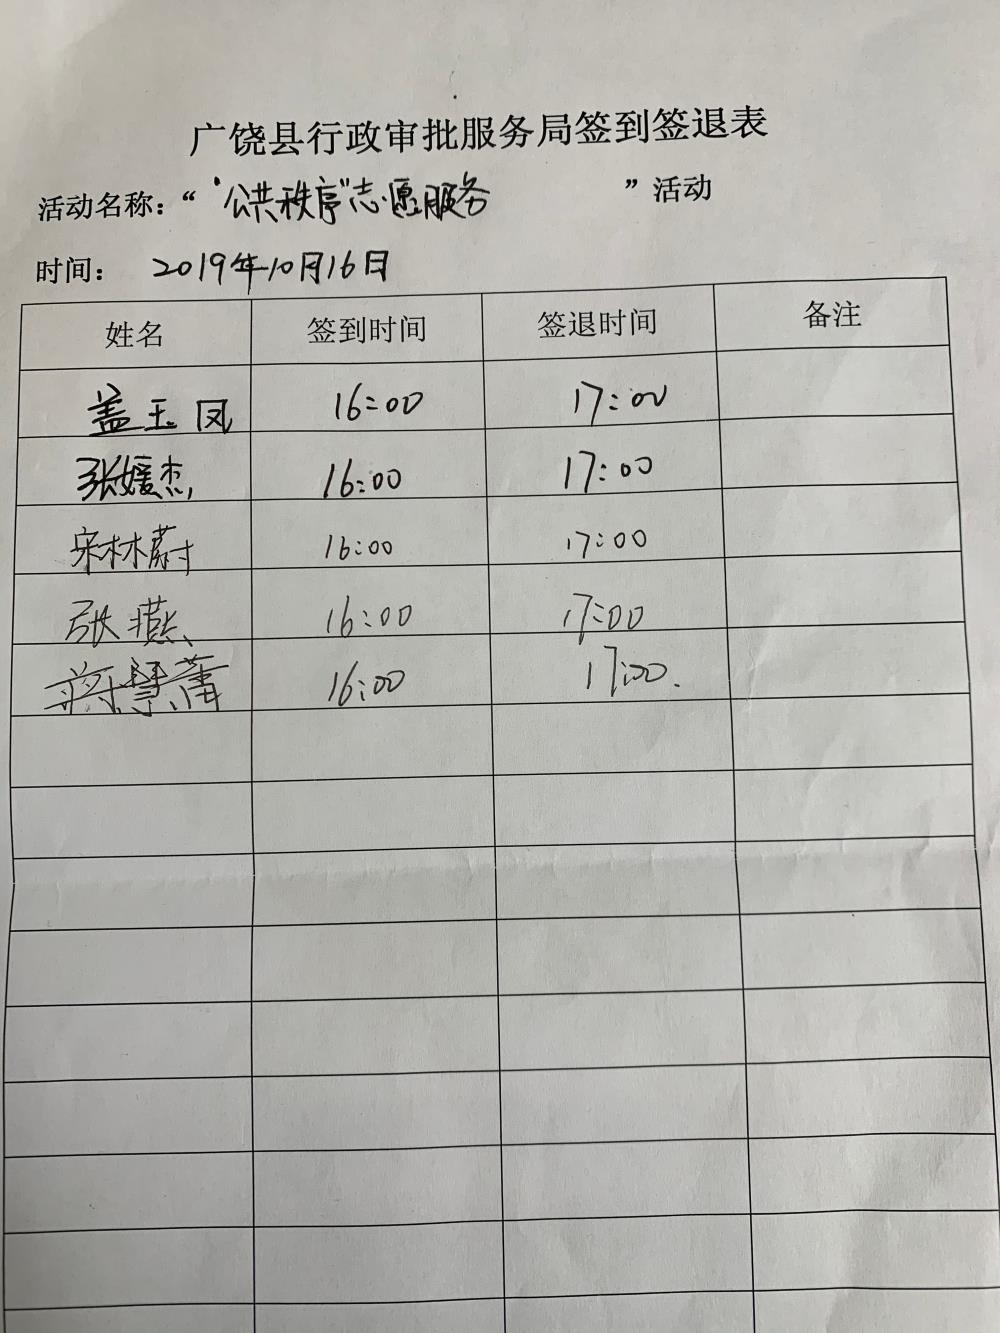 广饶县行政审批服务局签到签退表
活动名称：“ “公共秩序”志愿服务 ”活动
时间： 2019年10月16日
姓名 签到时间 签退时间 备注
盖玉凤 16:00 17:00
张媛杰 16:00 17:00
宋林蔚 16:00 17:00
张燕 16:00 17:00
蒋慧蕾 16:00 17:00.